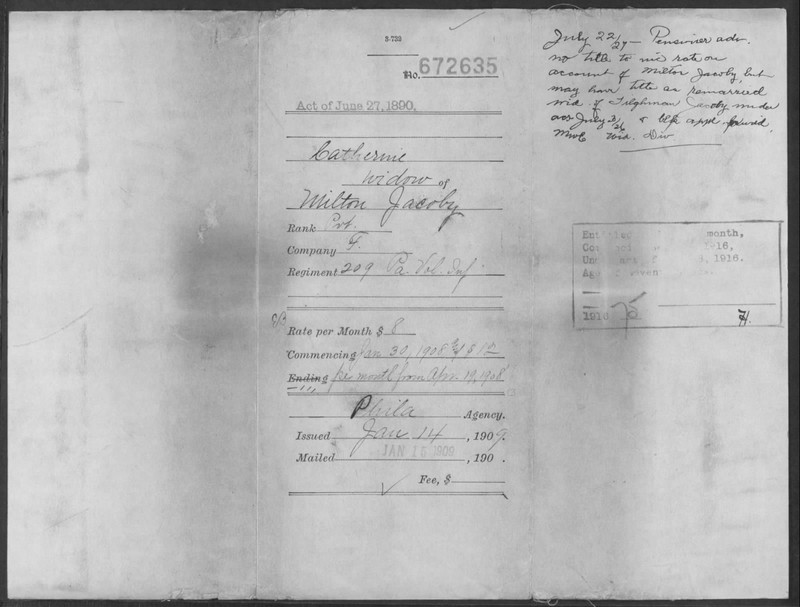 3-722
No. 672635
Act of June 27, 1890.
Catherine
widow of
Milton Jacoby
Rank Pvt.
Company F.
Regiment 209 Pa. Vol. Inf.
Rate per Month $ 8
Commencing Jan 30, 1908 & $12
Ending per month from Apr. 19, 1908
Phila Agency.
Issued Jan 14, 1909.
Mailed JAN 1909, 190 .
Fee, $
July 22/27 - Pensioner adv.
no title to rate on
account of Milton Jacoby, but
may have title as remarried
wid. of Tilghman Jacoby under
act July 3/26 & blk appl. furwd.
Wid. Div
month,
-16,
1916.
1916
H.